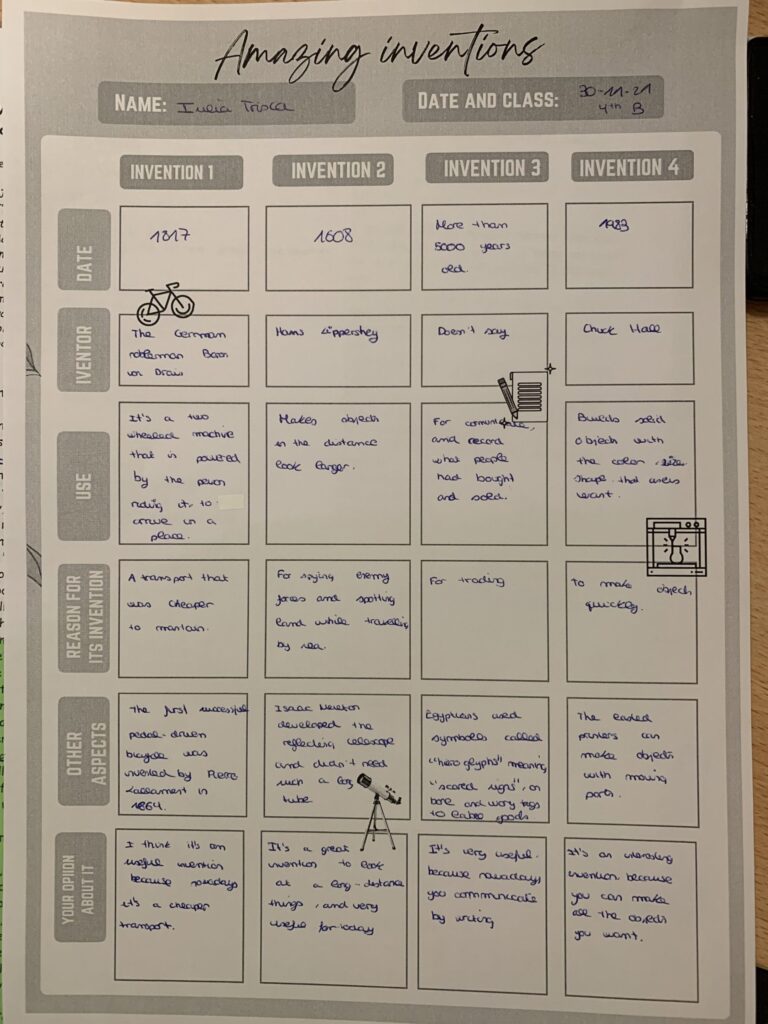 Amazing inventions
NAME: Iulia Trisca
DATE AND CLASS: 30-11-21
4th B
INVENTION 1
INVENTION 2
INVENTION 3
INVENTION 4
DATE
1817
1608
More than
5000 years
old.
1983
IVENTOR
The German
nobleman Baron
von Drais
Hans Lippershey
Doesn't say
Chuck Hall
USE
It's a two
wheeled machine
that is powered
by the person
riding it to
arrive in a
place.
Makes objects
in the distance
look larger.
For comunicate,
and record
what people
had bought
and sold.
Builds solid
objects with
the color, size
shape that users
want.
REASON FOR
ITS INVENTION
A transport that
was cheaper
to mantain.
For spying enemy
forces and spotting
land while travelling
by sea.
For trading
To make objects
quickly.
OTHER
ASPECTS
The first successful
pedal-driven
bicycle was
invented by Pierre
Lallement in
1864.
Isaac Newton
developed the
reflecting telescope
and didn't need
such a long
tube.
Egyptians used
symbols called
"hieroglyphs" meaning
"scared signs", on
bone and ivory tags
to label goods
The
printers can
make objects
with moving
parts.
YOUR OPIION
ABOUT IT
I think it's an
useful invention
because nowadays
it's a cheaper
transport.
It's a great
invention to look
at a long-distance
things, and very
useful for today
It's very useful.
because nowadays
you communicate
by writing
It's an interesting
invention because
you can make
all the objects
you want.